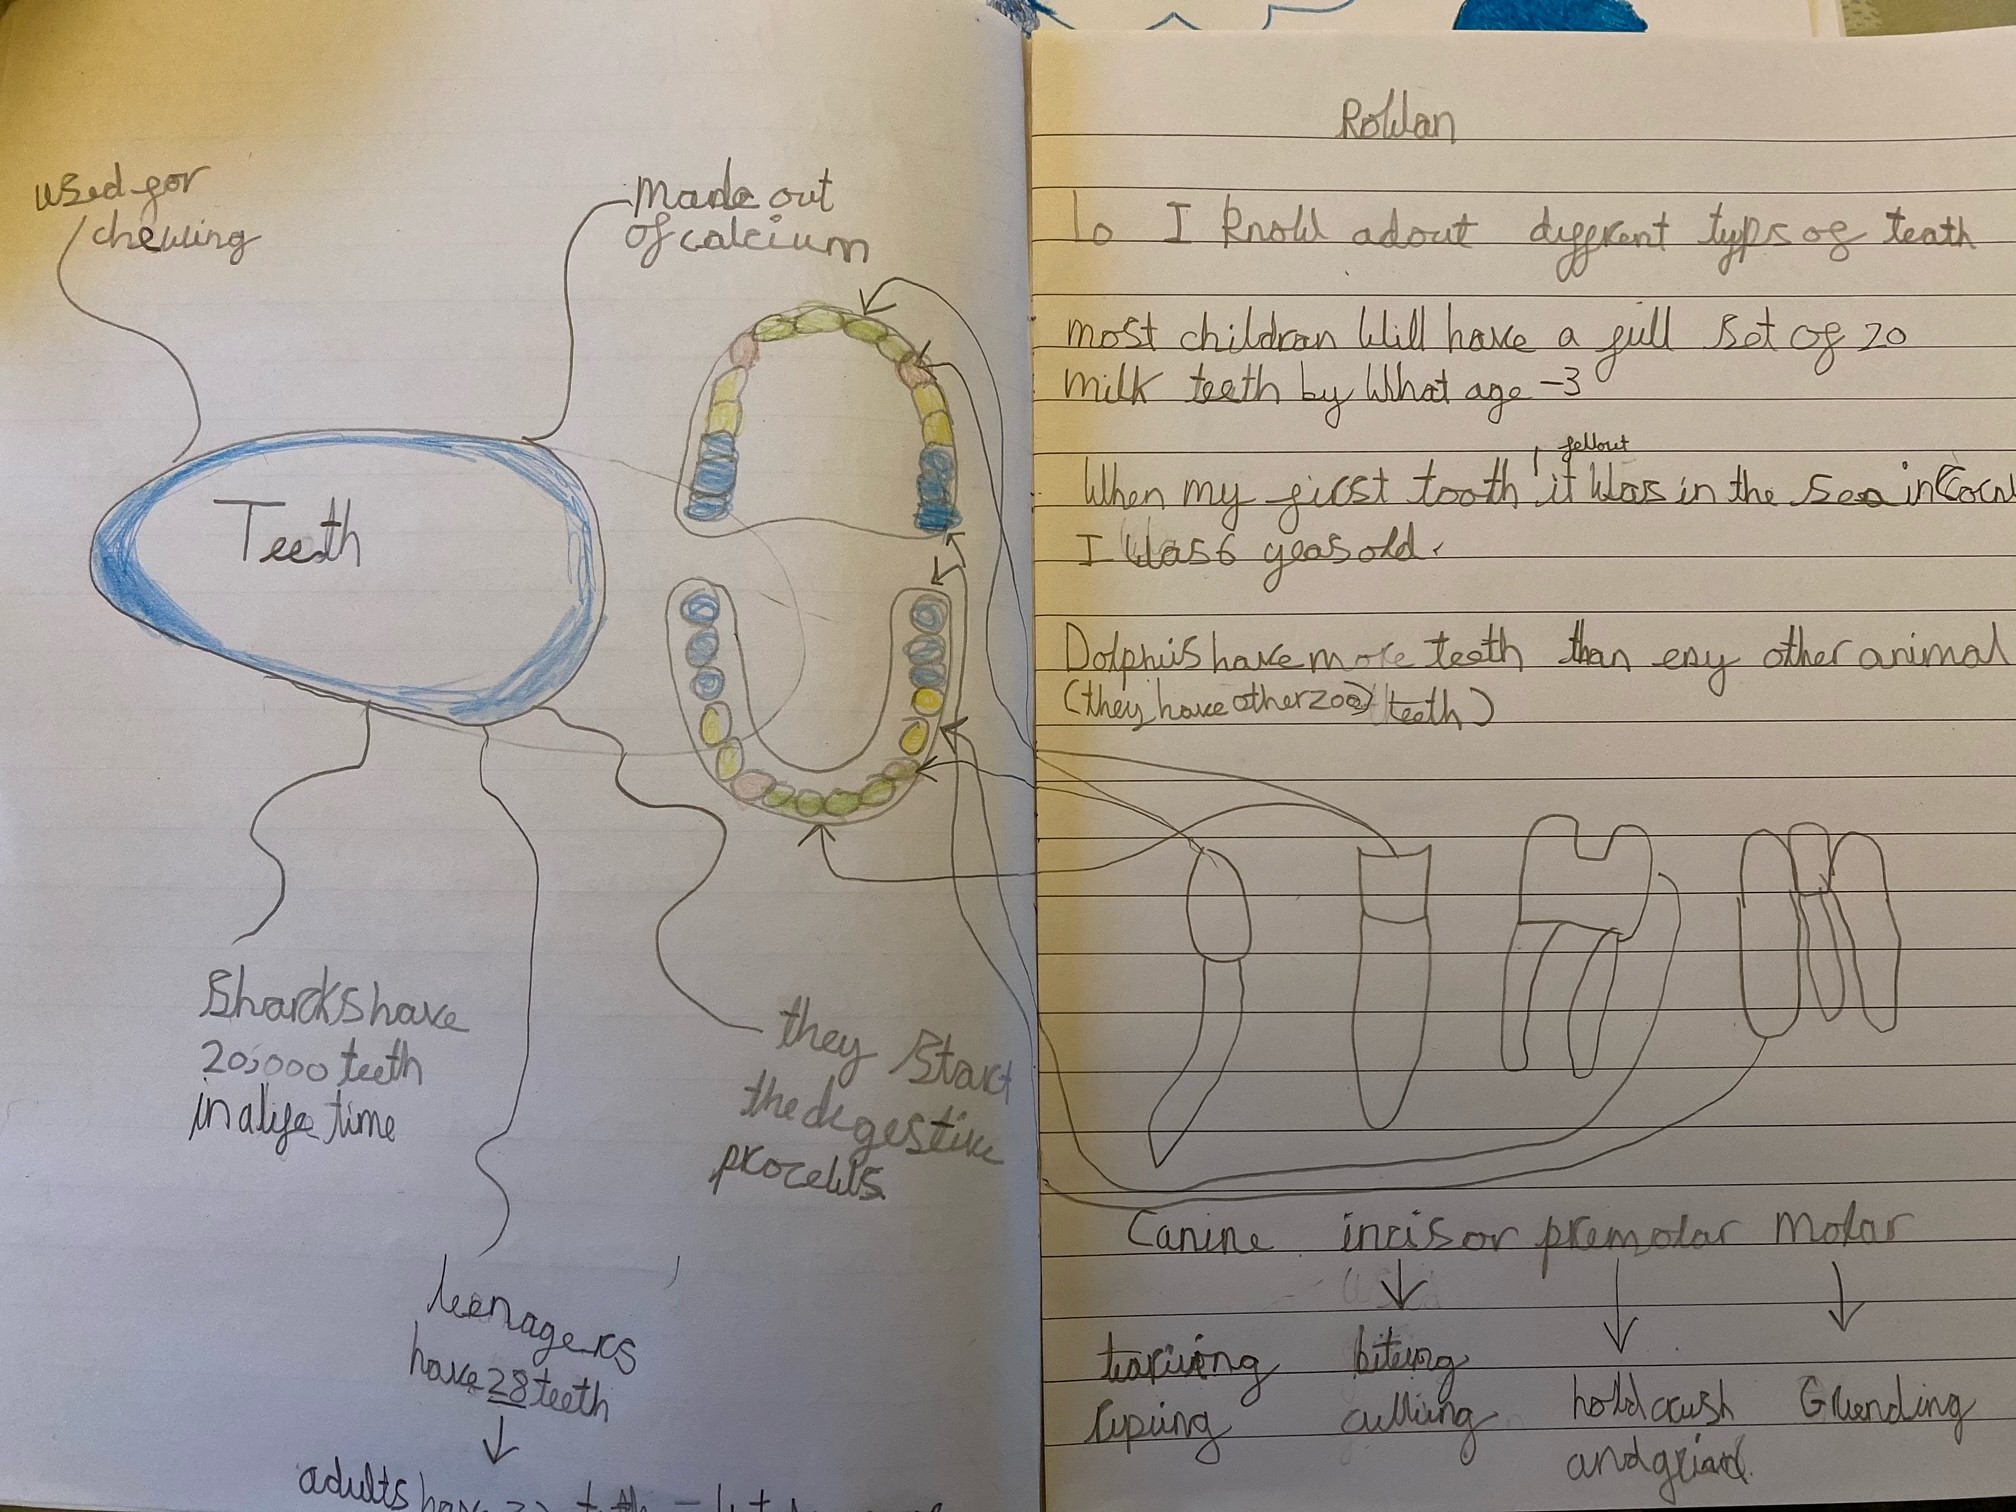 used for
chewing
Made out
of calcium
Teeth
Sharks have
20,000 teeth
in a life time
they start
the degestive
process
teenagers
have 28 teeth
adults have
Rowan
Lo I know adout diffrent typs of teath
most children will have a full set of 20
milk teeth by what age -3
fellout
When my first tooth it was in the sea in
I was 6 yeas old.
Dolphins have more teeth than eny other animal
(they have other 200 teeth)
Canine incisor premolar Molar
biteing
ripiing cutting hold crush
and grind